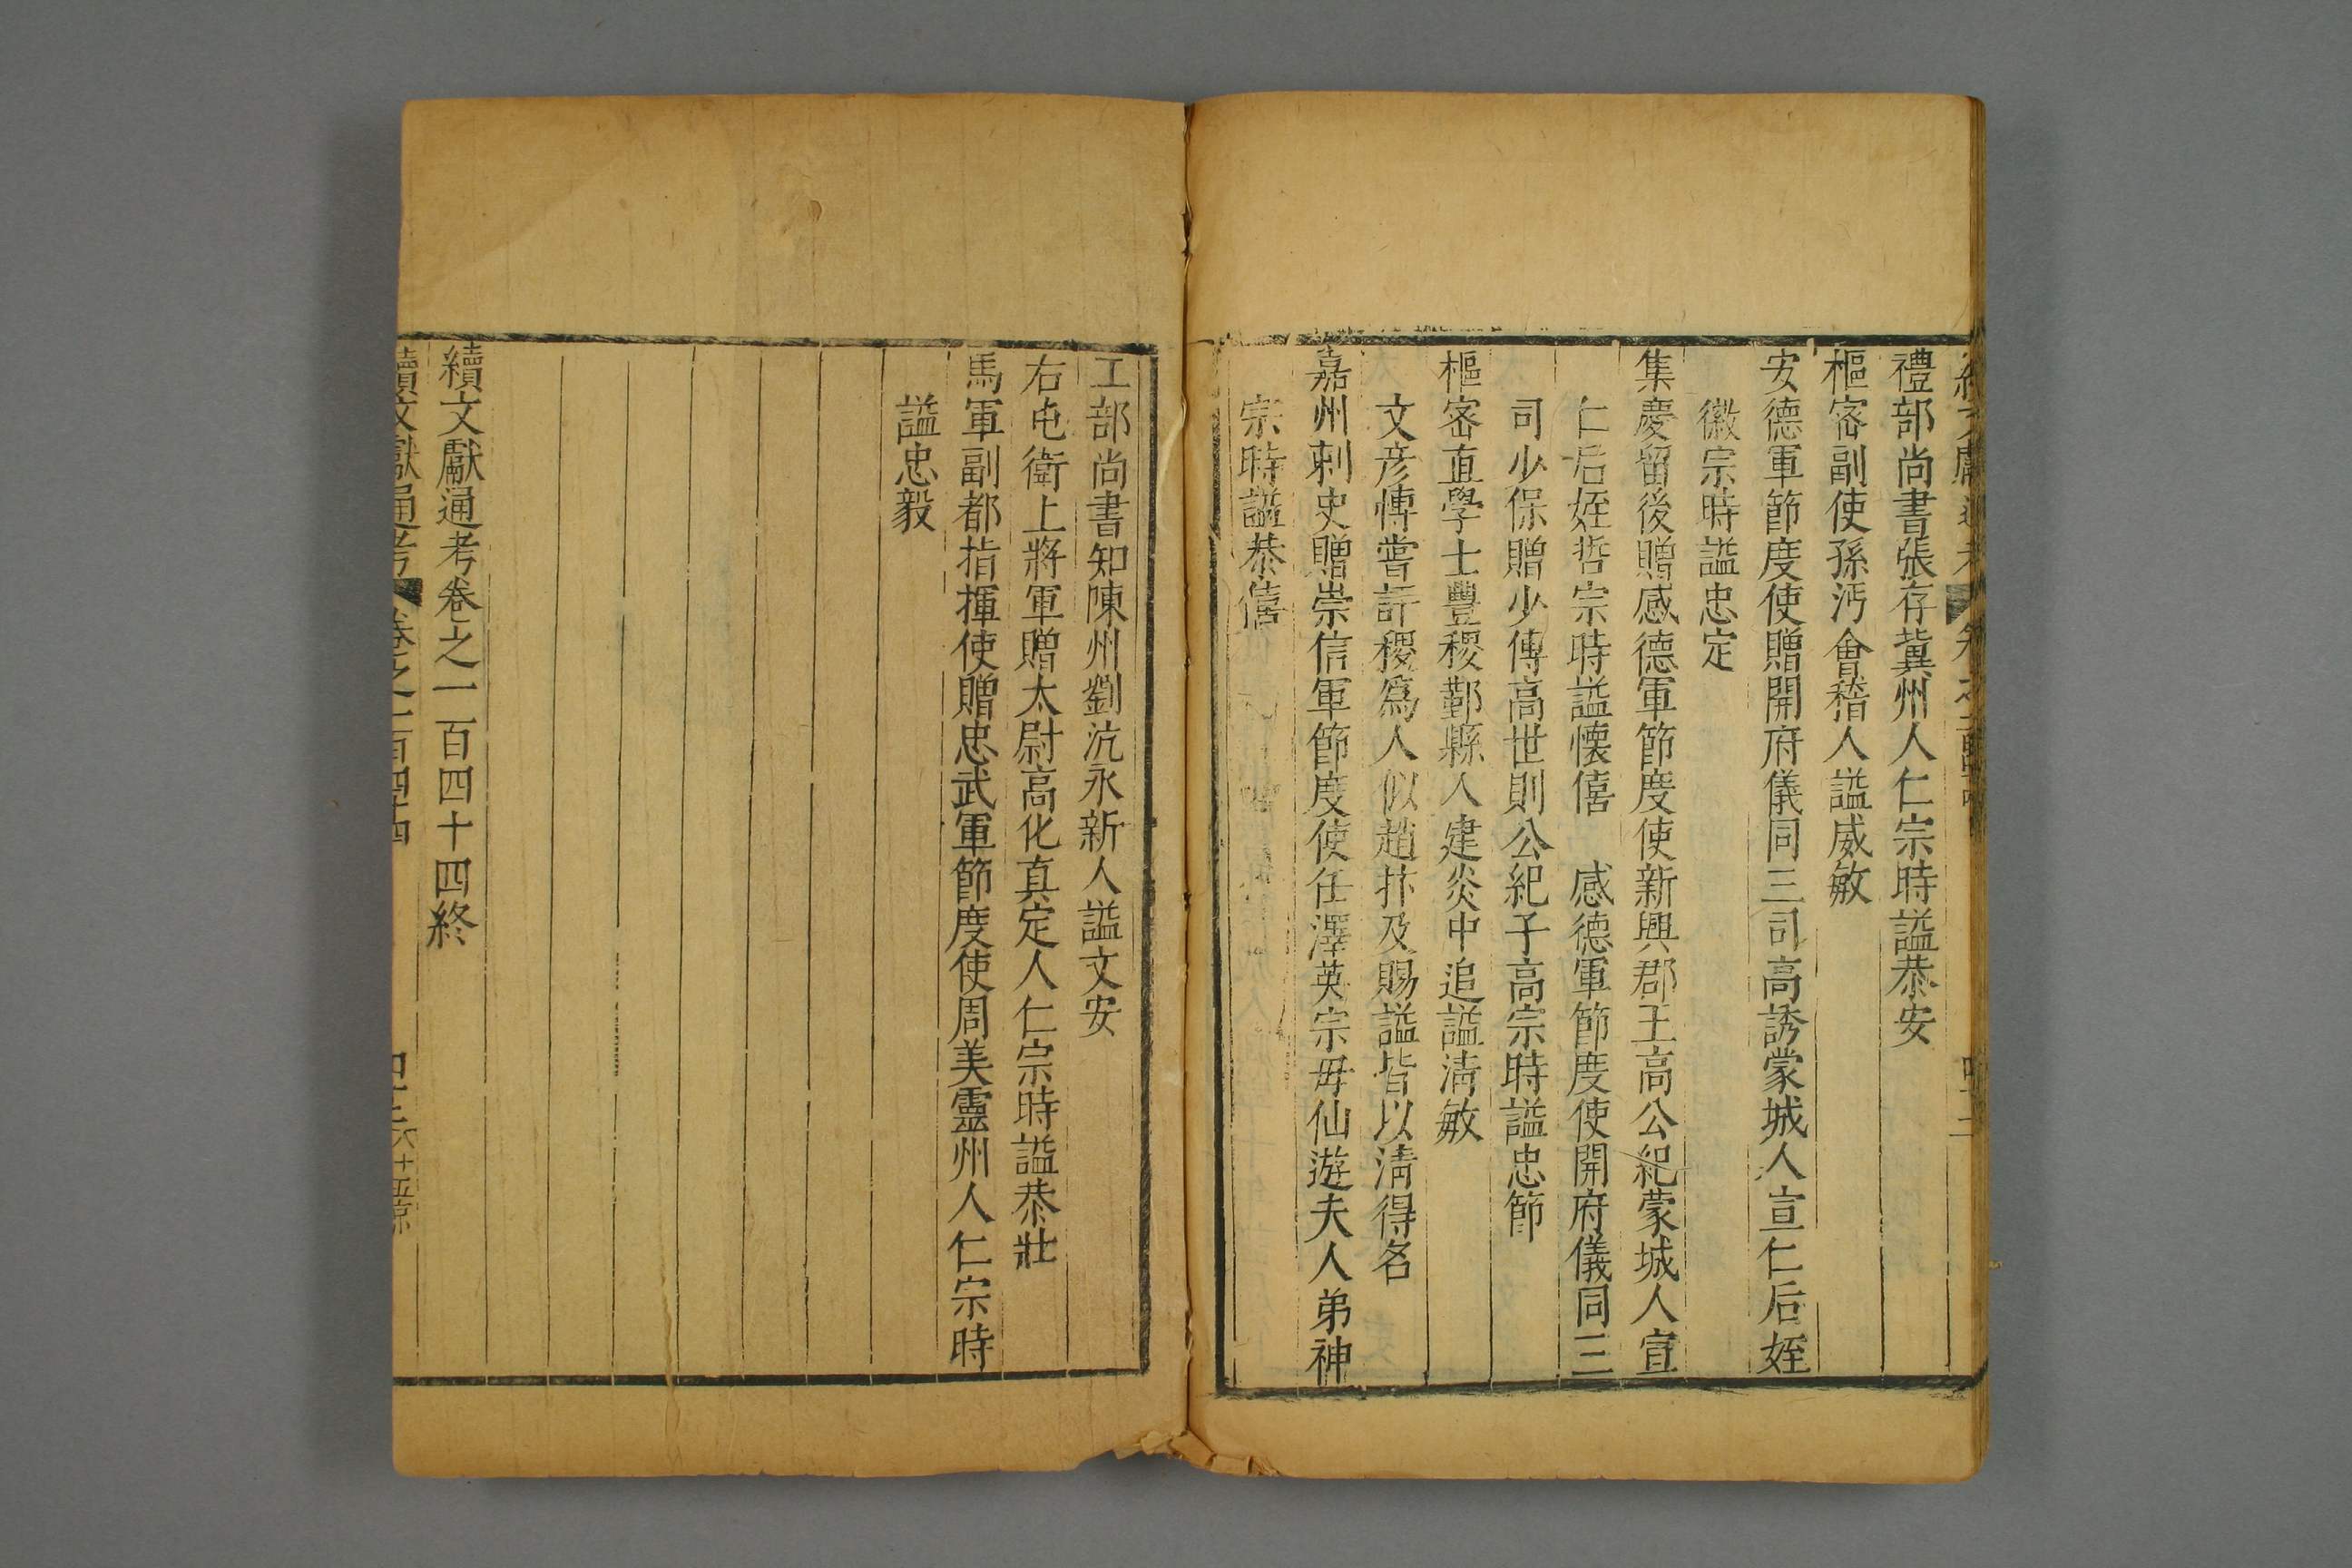 禮部尚書張存冀州人仁宗時謚恭安
樞密副使孫沔會稽人謚威敏
安德軍節度使贈開府儀同三司高誘蒙城人宣仁后姪
徽宗時謚忠定
集慶留後贈感德軍節度使新興郡王高公紀蒙城人宣
仁后姪哲宗時謚懐僖　感德軍節度使開府儀同三
司少保贈少傅高世則公紀子高宗時謚忠節
樞密直學士豐稷鄞縣人建炎中追謚清敏
文彦愽嘗評稷爲人似趙抃及賜謚皆以清得名
嘉州刺史贈崇信軍節度使任澤英宗毋仙遊夫人弟神
宗時謚恭僖
工部尚書知陳州劉沆永新人謚文安
右屯衛上將軍贈太尉高化真定人仁宗時謚恭壯
馬軍副都指揮使贈忠武軍節度使周美靈州人仁宗時
謚忠毅
續文獻通考卷之一百四十四終
續文獻通考　卷之一百四十四